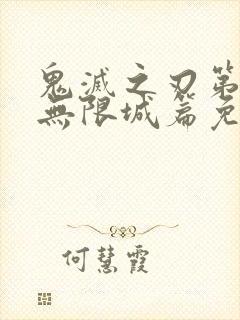 鬼滅之刃第
無限城篇免
何慧霞